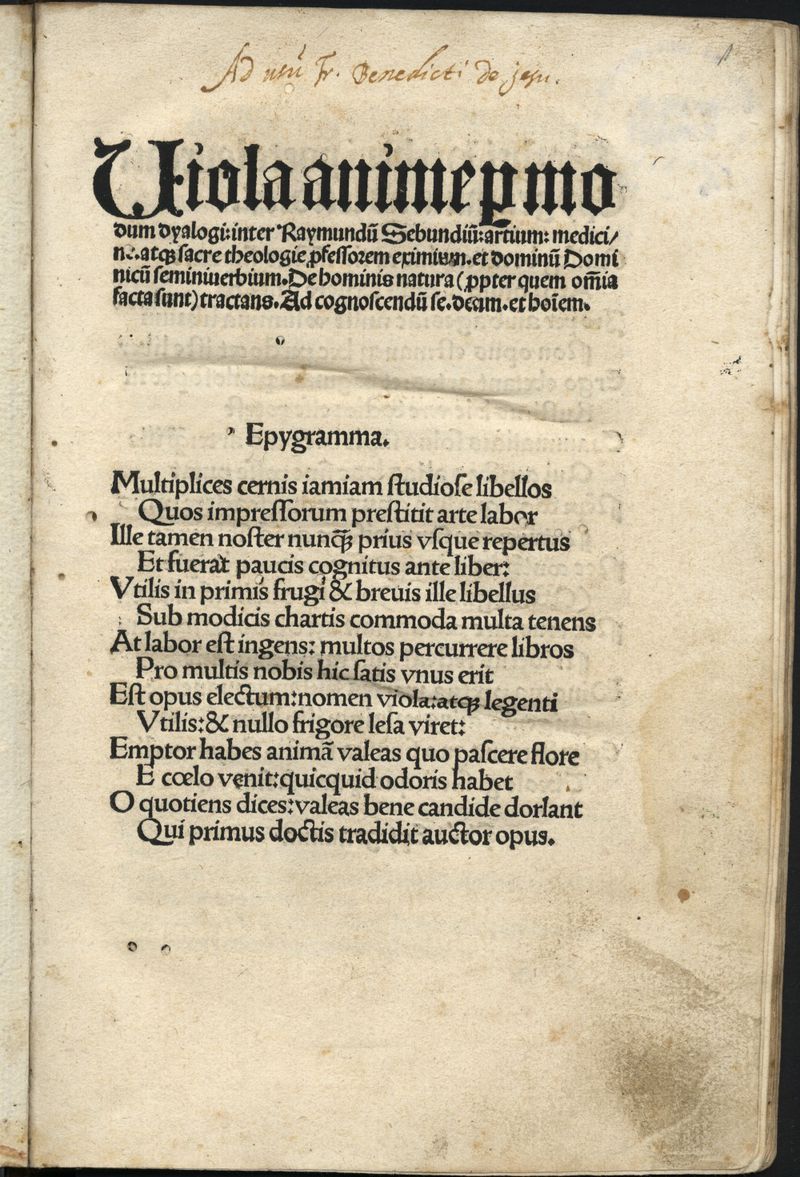 Ad usũ Fr. Benedicti de jesu.
1
Uiola anime ꝑ mo
dum dyalogi: inter Raymundũ Sebundiũ: artium: medici/
ne. atqꝫ sacre theologie ꝓfessorem eximium. et dominũ Domi
nicũ seminiuerbium. De hominis natura (ꝓpter quem om̃ia
facta sunt) tractans. Ad cognoscendũ se. deum. et hoĩem.
Epygramma.
Multiplices cernis iamiam studiose libellos
Quos impressorum prestitit arte labor
Ille tamen noster nunqꝫ prius vsque repertus
Et fuerat paucis cognitus ante liber:
Vtilis in primis frugi & breuis ille libellus
Sub modicis chartis commoda multa tenens
At labor est ingens: multos percurrere libros
Pro multis nobis hic satis vnus erit
Est opus electum: nomen viola: atqꝫ legenti
Vtilis: & nullo frigore lesa viret:
Emptor habes animã valeas quo pascere flore
E cœlo venit: quicquid odoris habet
O quotiens dices: valeas bene candide dorlant
Qui primus doctis tradidit auctor opus.